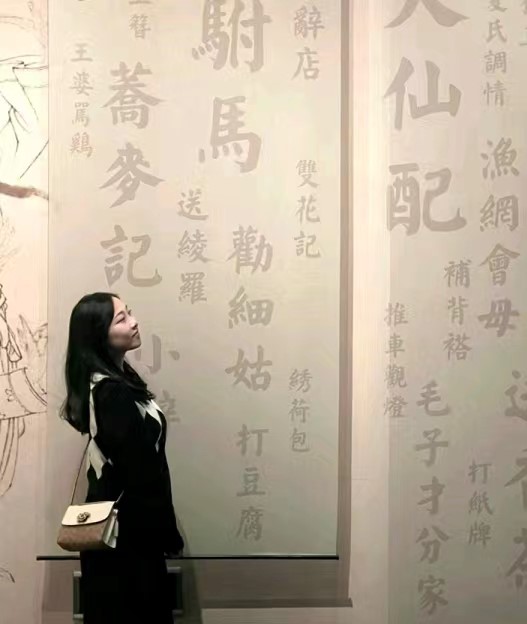 氏調情
漁網會母
打紙牌
補背褡
仙配
毛子才分家
推車觀燈
辭店
雙花記
綉荷包
駙馬
勸細姑
打豆腐
送綾羅
小辭
簪
蕎麥記
王婆罵鷄